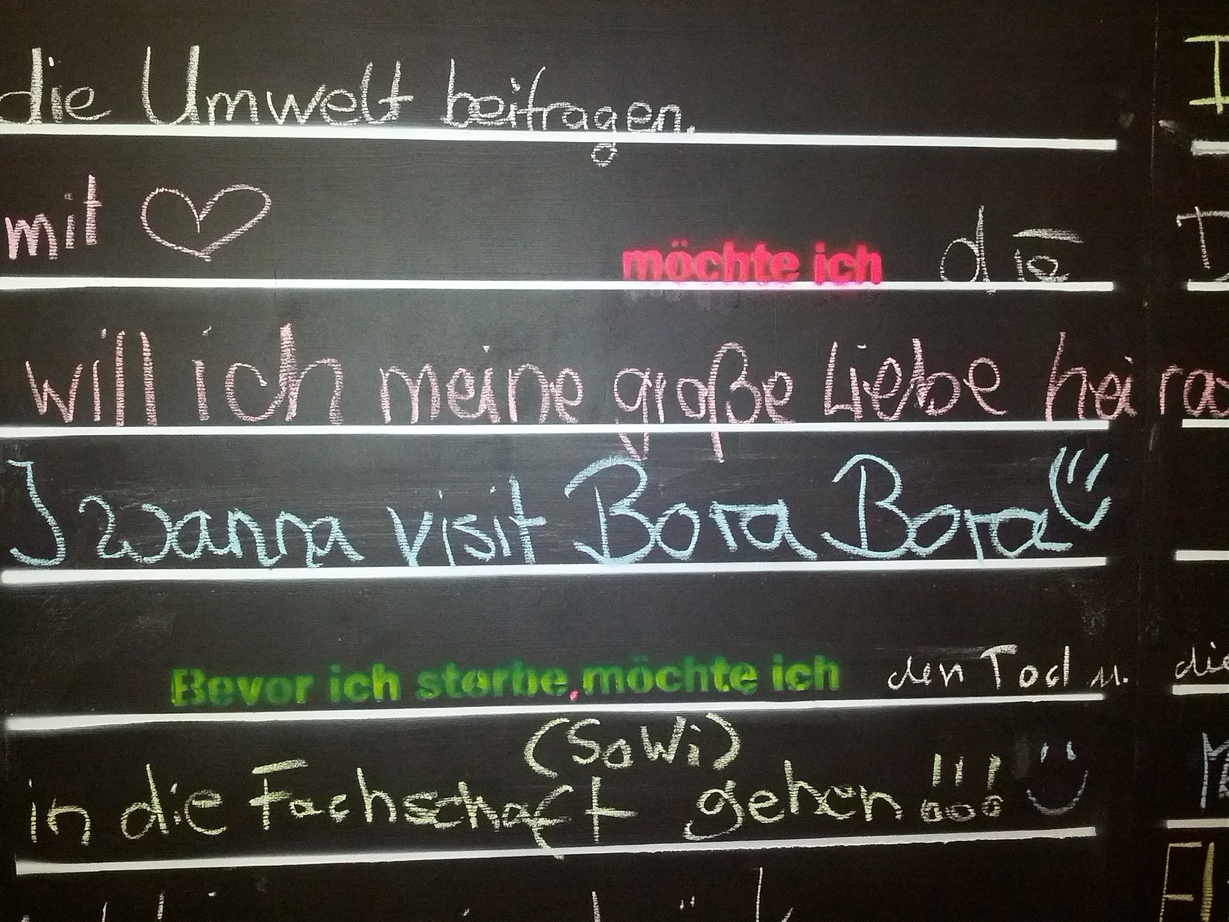 die Umwelt beitragen.
mit ♡ möchte ich die
will ich meine große Liebe heira
I wanna visit Bora Bora
Bevor ich sterbe, möchte ich den Tod u. die
(SoWi)
in die Fachschaft gehen !!!